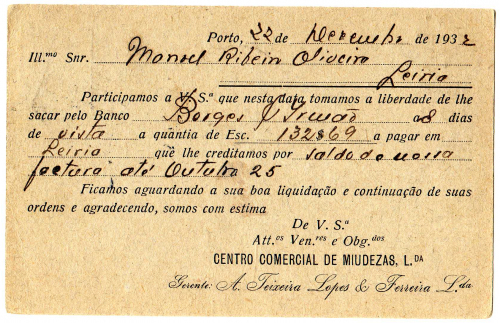 Porto, 22 de Dezembro de 1932
Ill.mo Snr. Manoel Ribeiro Oliveira
Leiria
Participamos a V. S.ª que nesta data tomamos a liberdade de lhe
sacar pelo Banco Borges & Irmão a 8 dias
de vista a quantia de Esc. 132$69 a pagar em
Leiria que lhe creditamos por saldo de nossa
factura até Outubro 25
Ficamos aguardando a sua boa liquidação e continuação de suas
ordens e agradecendo, somos com estima
De V. S.ª
Att.os Ven.res e Obg.dos
CENTRO COMERCIAL DE MIUDEZAS, L.DA
Gerente: A. Teixeira Lopes & Ferreira L.da